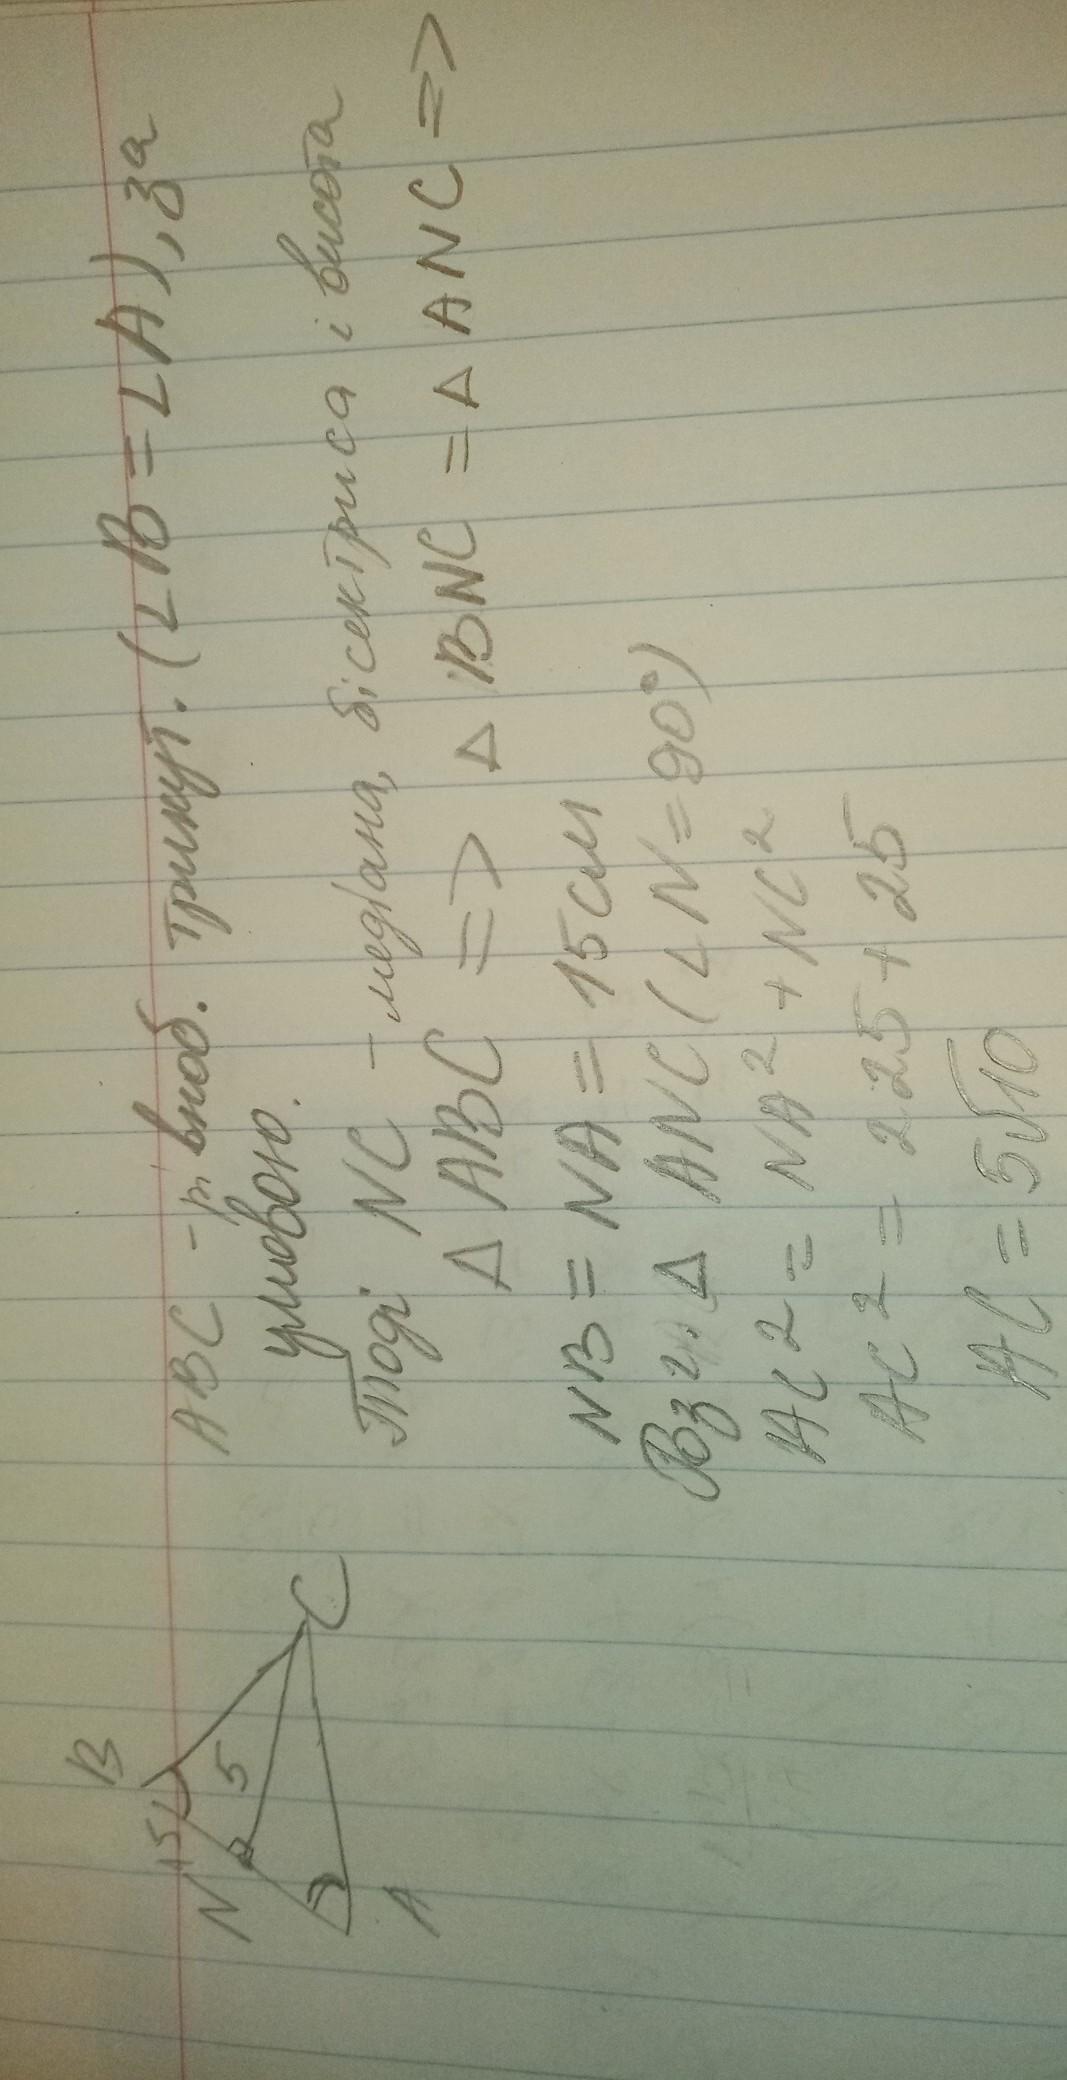 B
15
N
5
C
A
ABC - р. вноб. трикут. (∠B = ∠A), за
умовою.
Тоді NC - медіана, бісектриса і висота
Δ ABC => Δ BNC = Δ ANC =>
NB = NA = 15 см
Вз Δ ANC (∠N = 90°)
AC² = NA² + NC²
AC² = 225 + 25
AC = 5√10